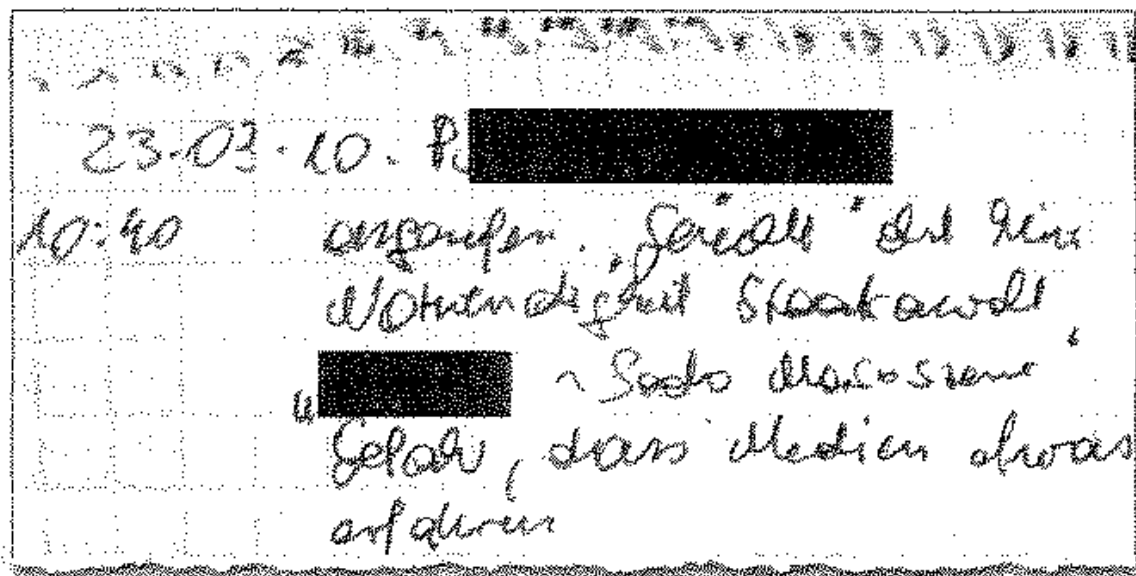 23.03.10. P.
10:40 angerufen. "Gericht"
Notwendigkeit Staatsanwalt
"~ Sado Masoszene"
Gefahr, dass Medien etwas
erfahren